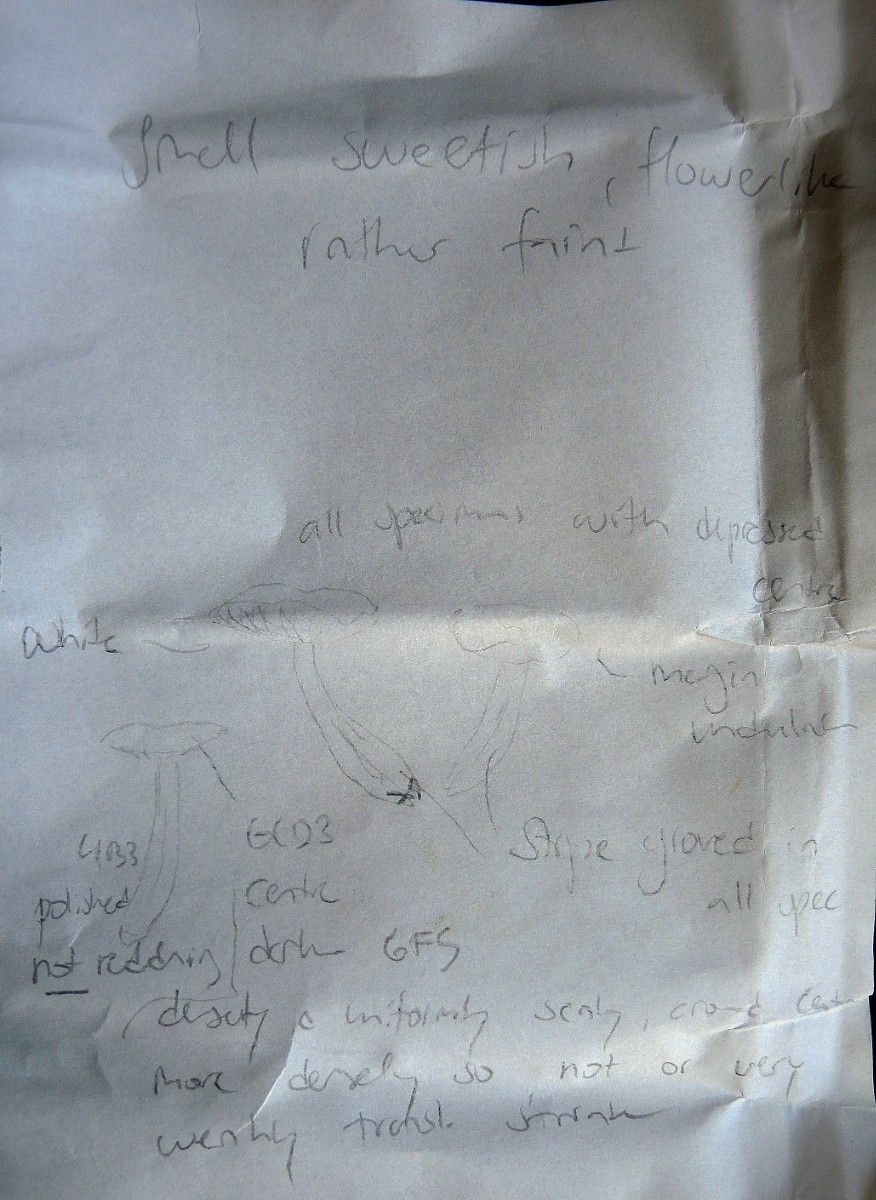 Smell sweetish, flowerlike
rather faint
all specimens with depressed
centre
white
margin
undulate
4B3
polished
not reddening
6CD3
centre
dark 6F5
Stipe grooved in
all spec
densely & uniformly scaly, around centre
more densely so not or very
weakly transl. striate